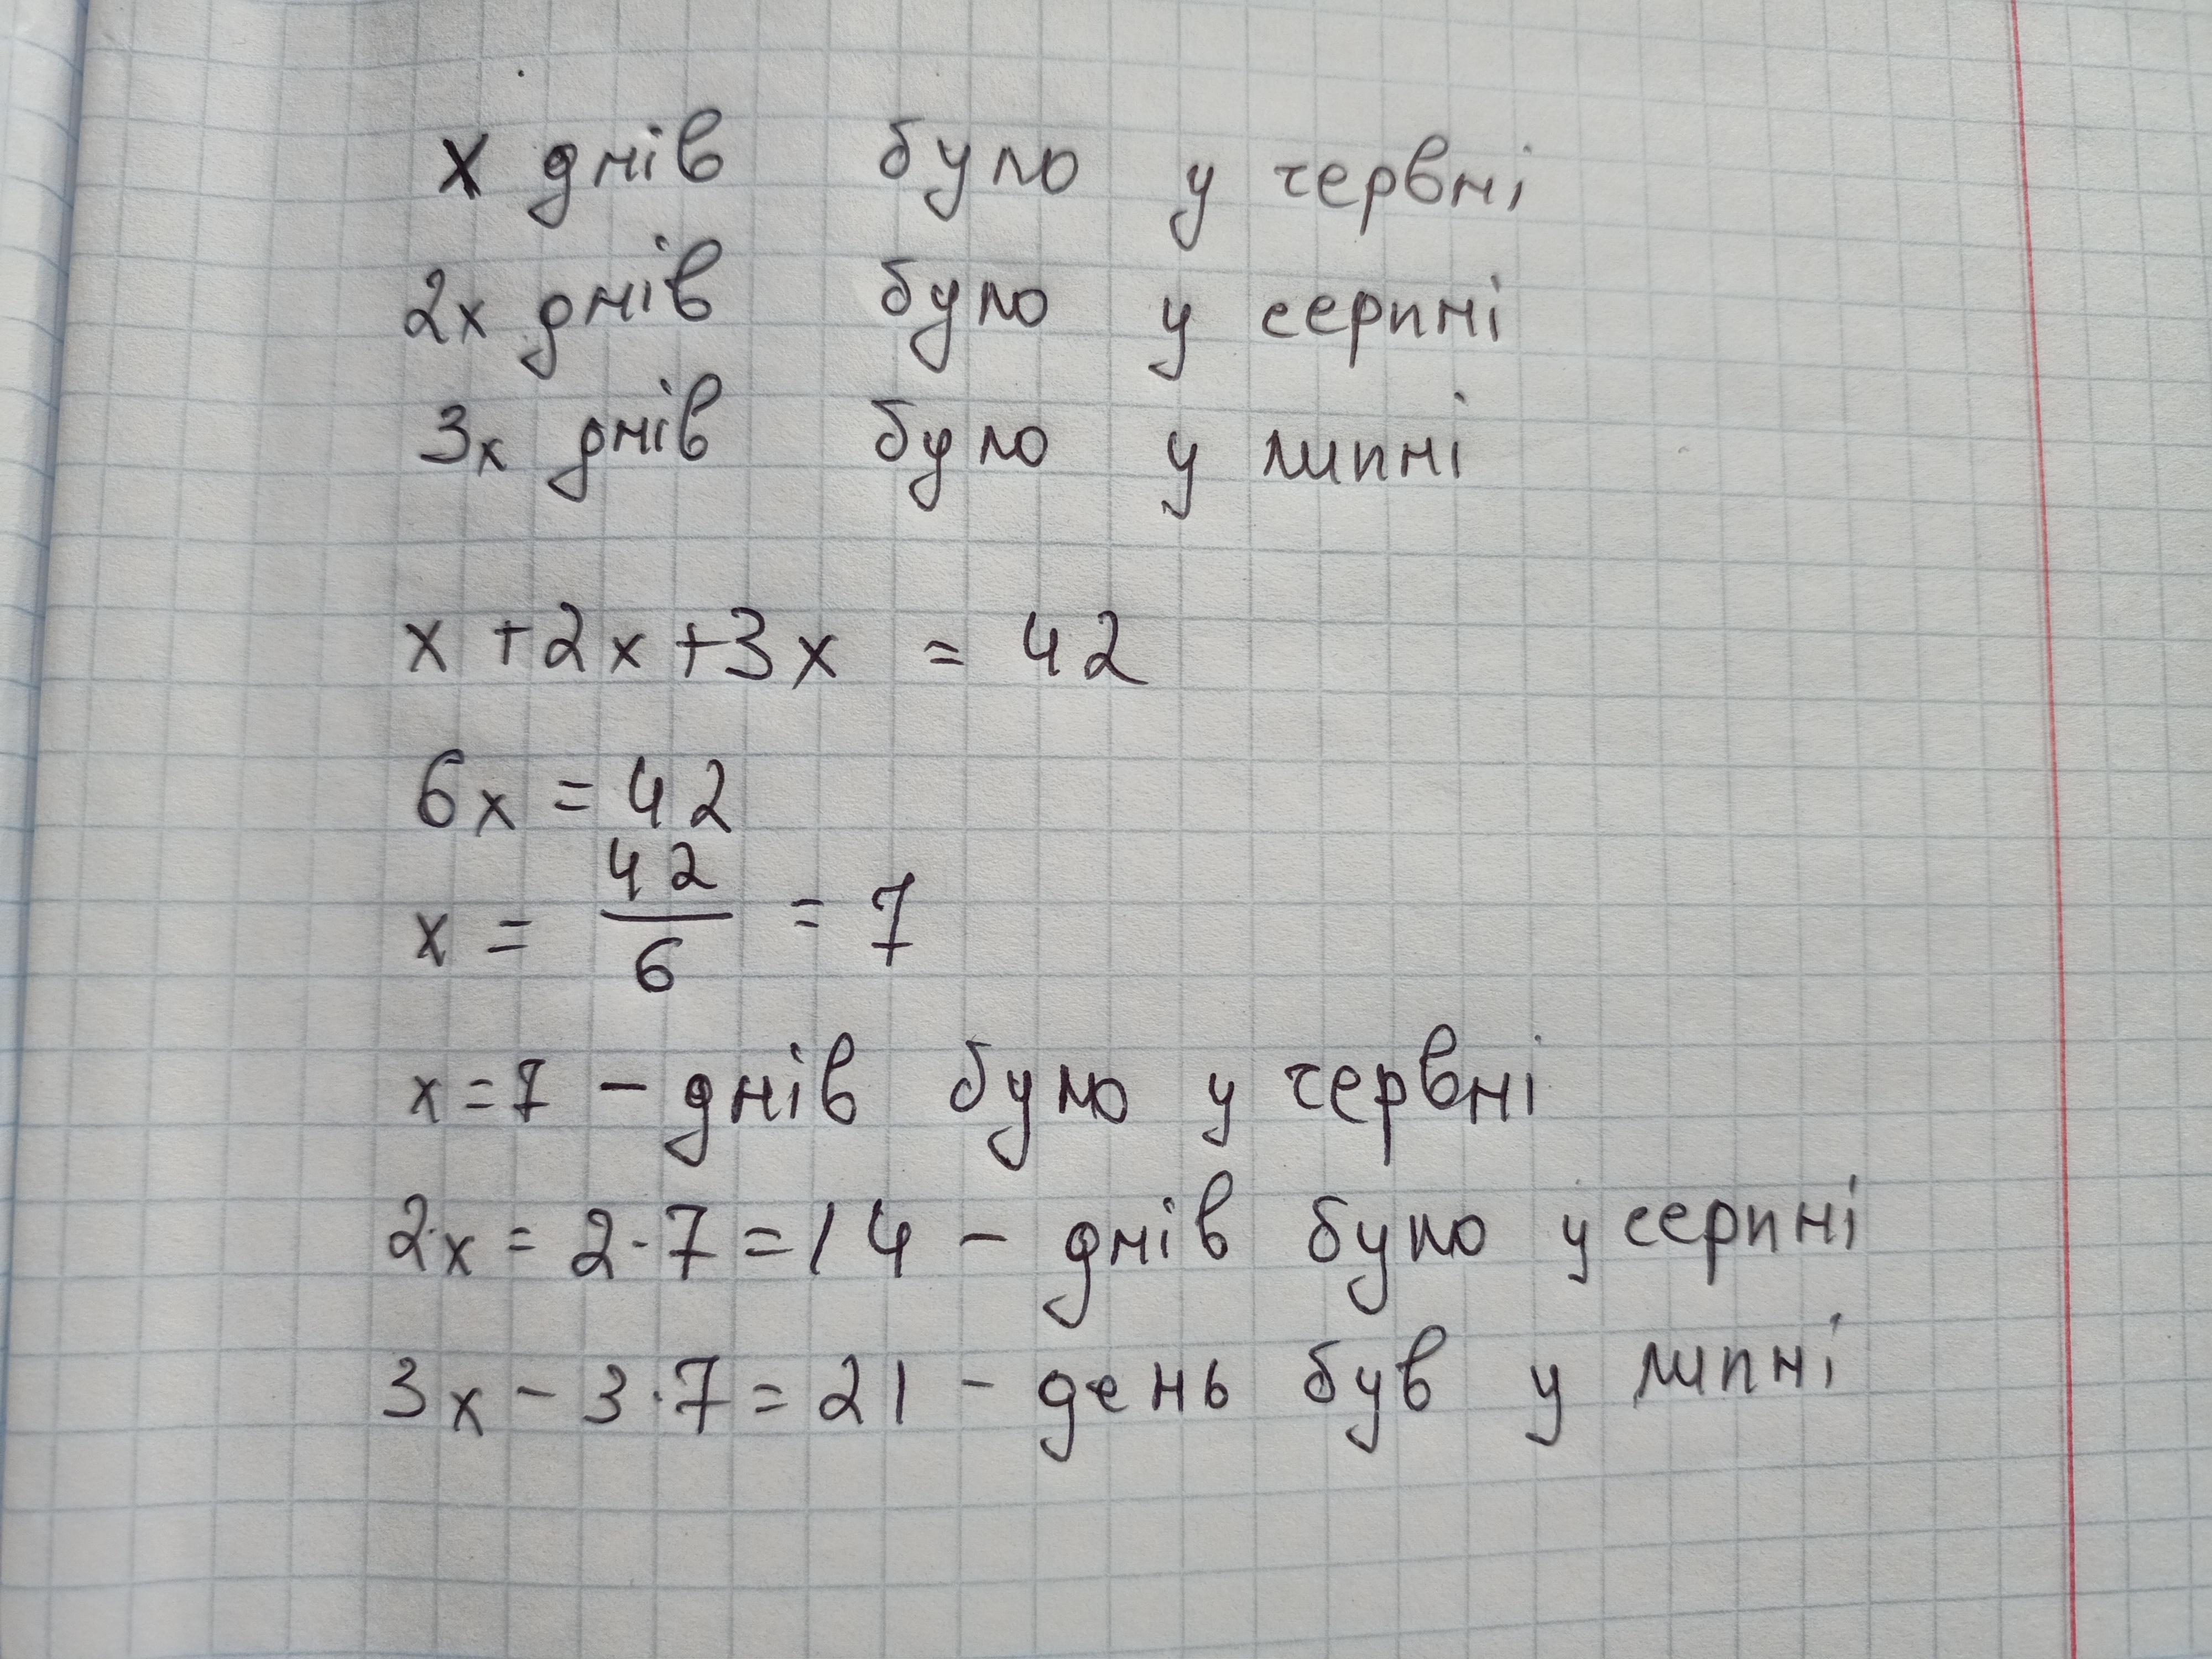 x днів було у червні
2x днів було у серпні
3x днів було у липні
x + 2x + 3x = 42
6x = 42
x = 42/6 = 7
x = 7 – днів було у червні
2x = 2·7 = 14 – днів було у серпні
3x – 3·7 = 21 – день був у липні